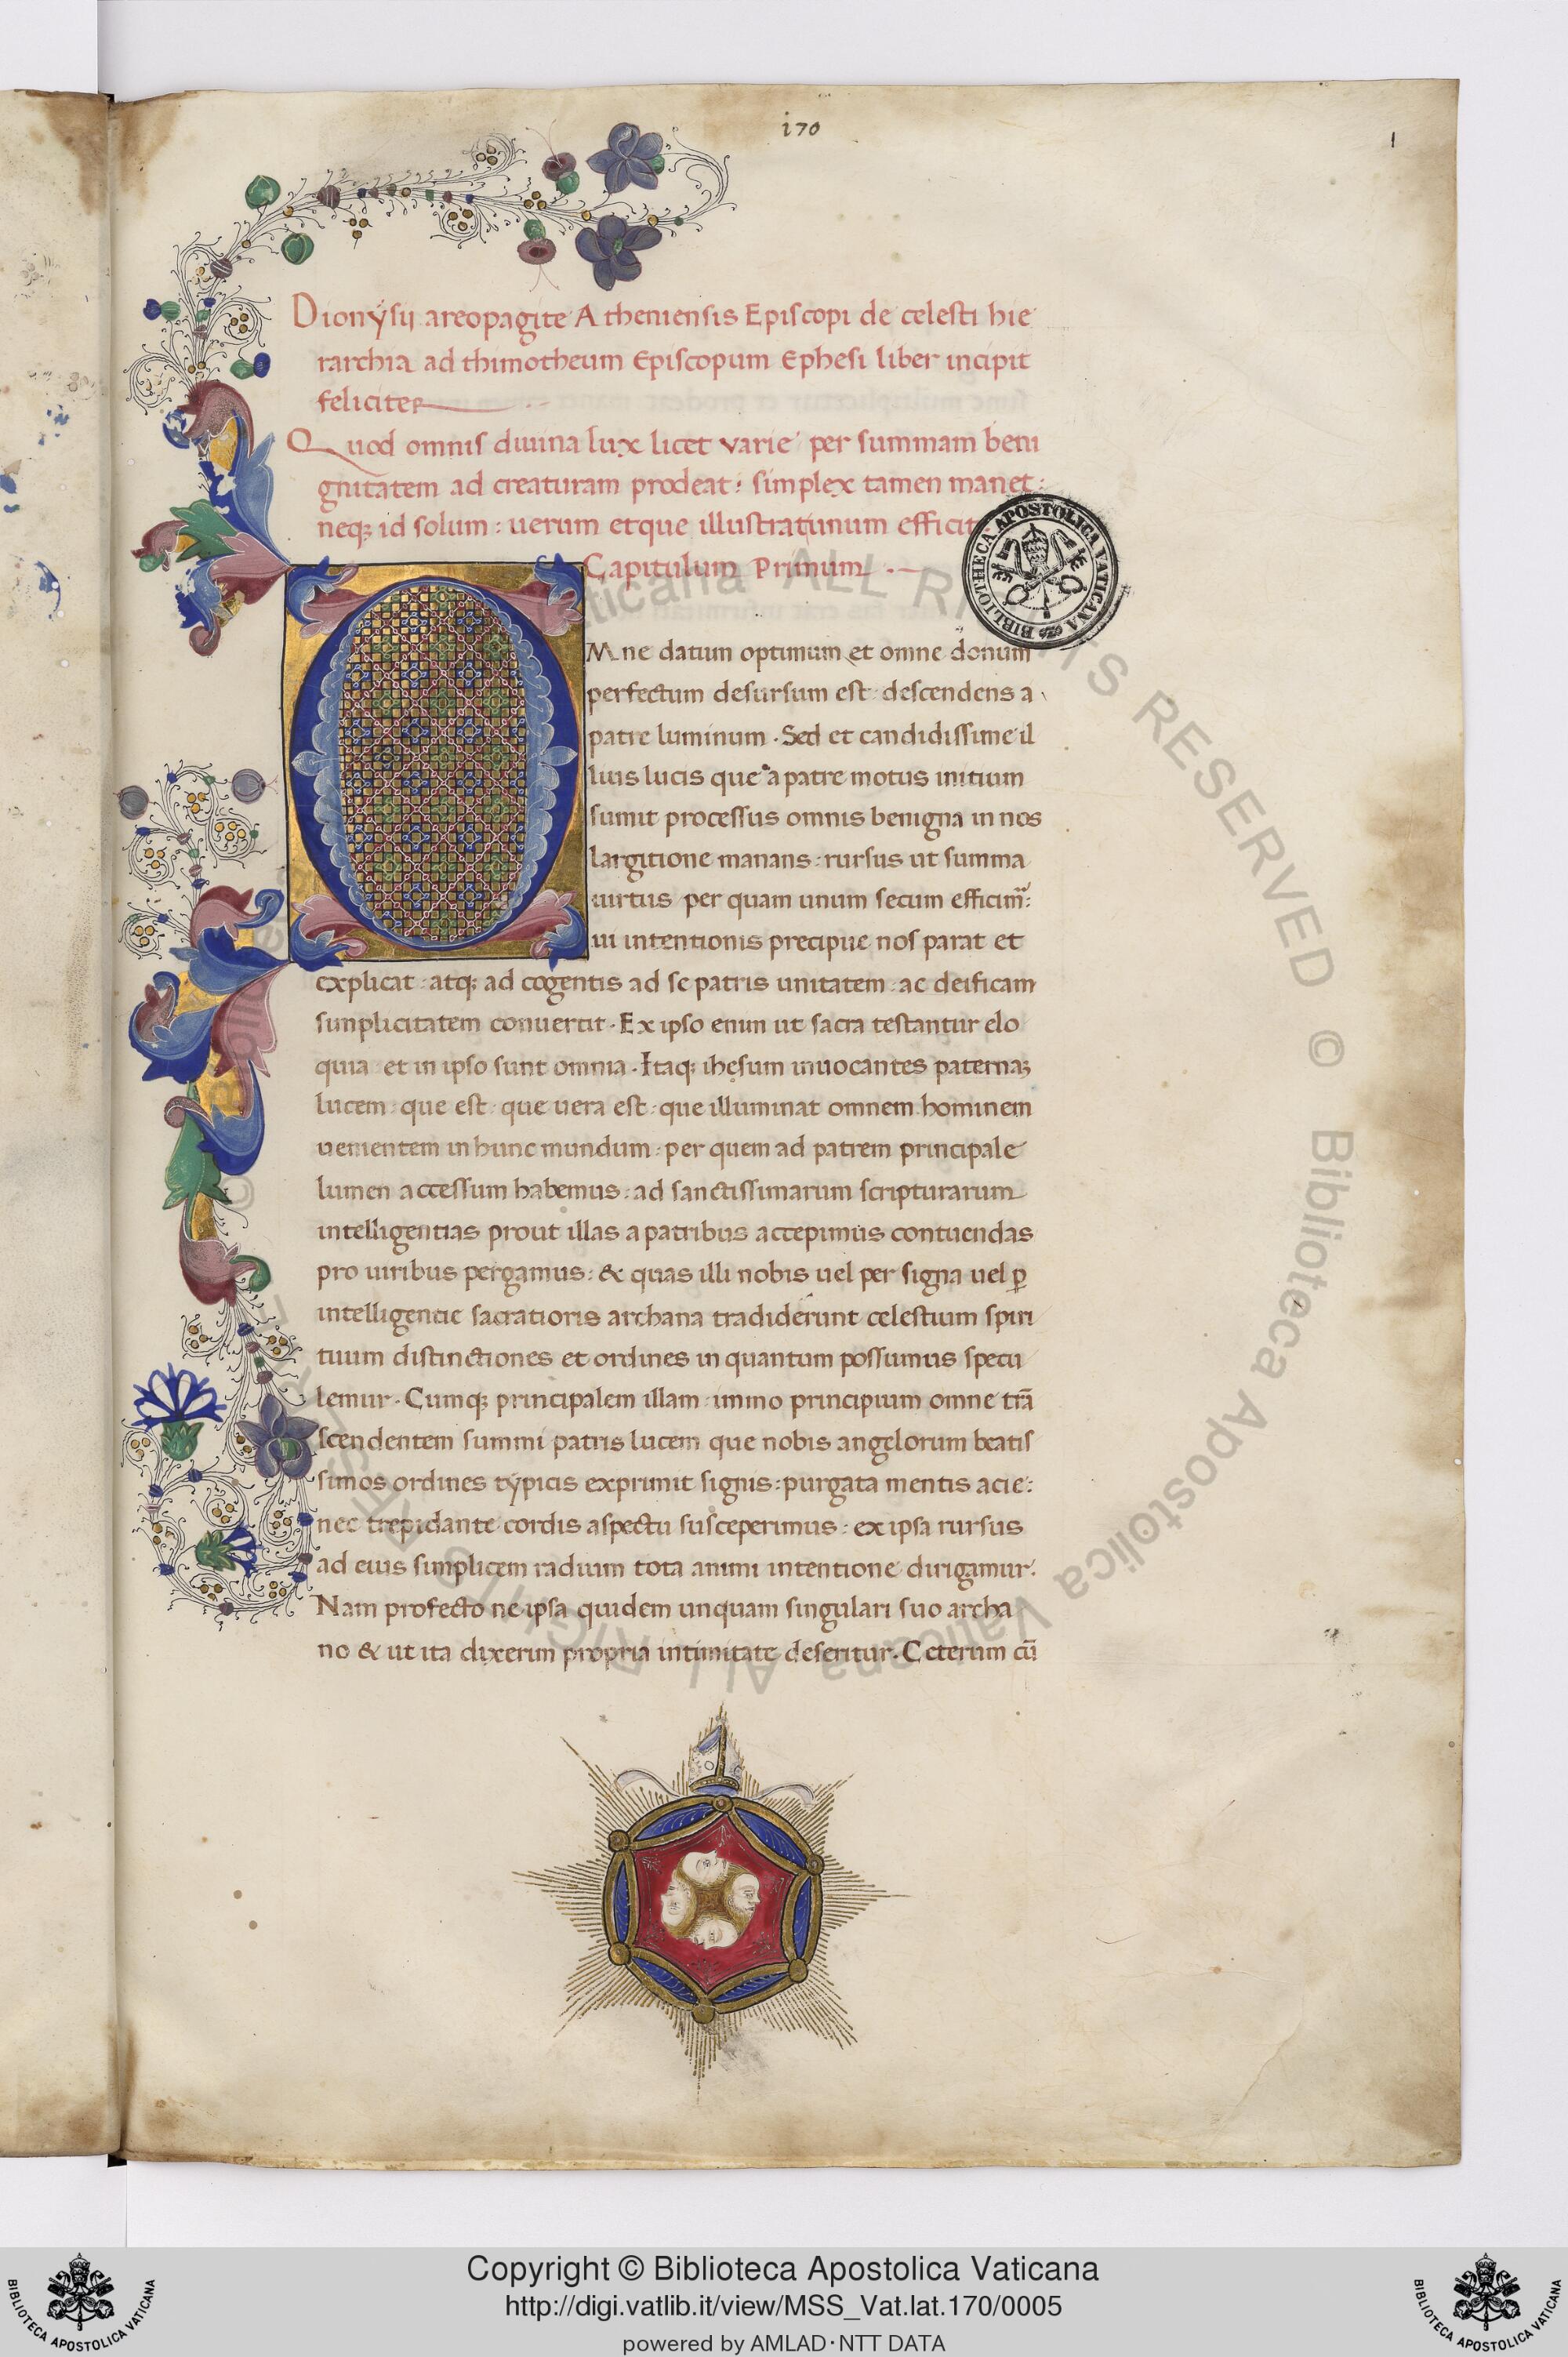 i70
1
Dionÿsii areopagite Atheniensis Episcopi de celesti hie
rarchia ad thimotheum Episcopum Ephesi liber incipit
feliciter
Quod omnis diuina lux licet varie per summam beni
gnitatem ad creaturam prodeat: simplex tamen manet:
neq; id solum: uerum etque illustrat unum efficit
Capitulum Primum
OMne datum optimum et omne donum
perfectum desursum est: descendens a
patre luminum. Sed et candidissime il
lius lucis que a patre motus initium
sumit processus omnis benigna in nos
largitione manans: rursus ut summa
uirtus per quam unum secum efficim̃:
ui intentionis precipue nos parat et
explicat: atq; ad cogentis ad se patris unitatem: ac deificam
simplicitatem conuertit. Ex ipso enim ut sacra testantur elo
quia et in ipso sunt omnia. Itaq; ihesum inuocantes paternaʒ
lucem: que est: que uera est: que illuminat omnem hominem
uenientem in hunc mundum: per quem ad patrem principale
lumen accessum habemus: ad sanctissimarum scripturarum
intelligentias prout illas a patribus accepimus contuendas
pro uiribus pergamus: & quas illi nobis uel per signa uel ꝑ
intelligentie sacratioris archana tradiderunt celestium spiri
tuum distinctiones et ordines in quantum possumus specu
lemur. Cumq; principalem illam immo principium omne trã
scendentem summi patris lucem que nobis angelorum beatis
simos ordines tÿpicis exprimit signis: purgata mentis acie:
nec trepidante cordis aspectu susceperimus: ex ipsa rursus
ad eius simplicem radium tota animi intentione dirigamur.
Nam profecto ne ipsa quidem unquam singulari suo archa
no & ut ita dixerim propria intimitate deseritur. Ceterum cũ
BIBLIOTHECA APOSTOLICA VATICANA
© Biblioteca Apostolica Vaticana ALL RIGHTS RESERVED
Copyright © Biblioteca Apostolica Vaticana
http://digi.vatlib.it/view/MSS_Vat.lat.170/0005
powered by AMLAD·NTT DATA
BIBLIOTECA APOSTOLICA VATICANA
BIBLIOTECA APOSTOLICA VATICANA